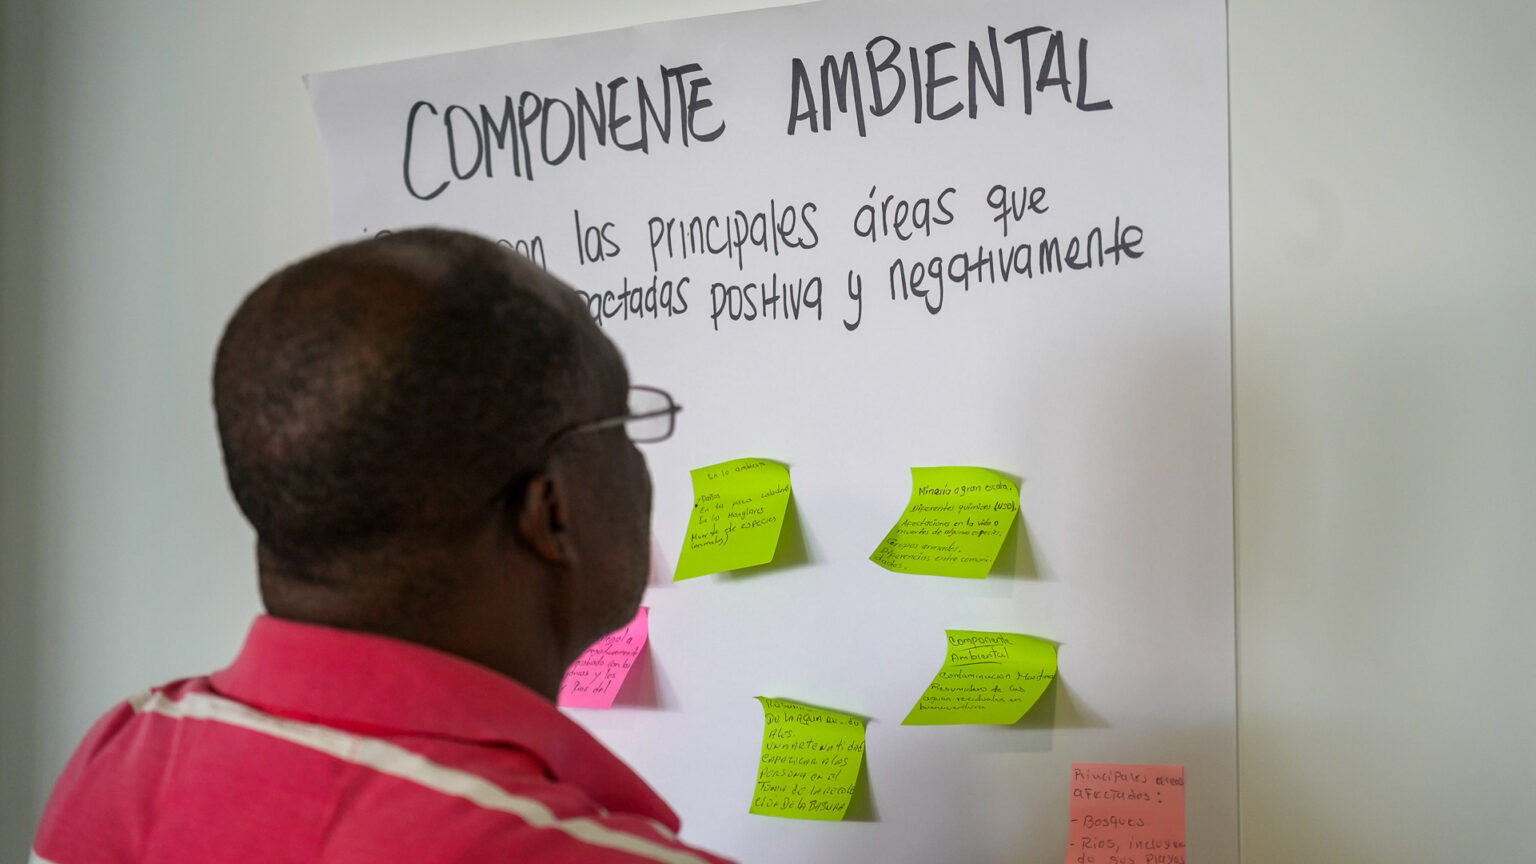 COMPONENTE AMBIENTAL
son las principales áreas que
pactadas positiva y negativamente
En lo ambiental
Daños
En la pesca
En los Manglares
Muerte de especies
(animales)
Minería a gran escala.
Diferentes químicos (USO).
Afectaciones en la vida o
muertes de algunas especies.
Grupos armados.
Diferencias entre comuni-
dades.
Componente
Ambiental
Contaminacion Maritima
de las
aguas residuales en
buenaventura
DE LA AGUA
UNA ARTERNATIDAD
CAPACICAR A LAS
PERSONA EN EL
TEMA DE LA RECOLE
CION DE LA BASURA
y los
Rios del
Principales areas
afectadas:
- Bosques
- Rios, incluyen
do sus Playas